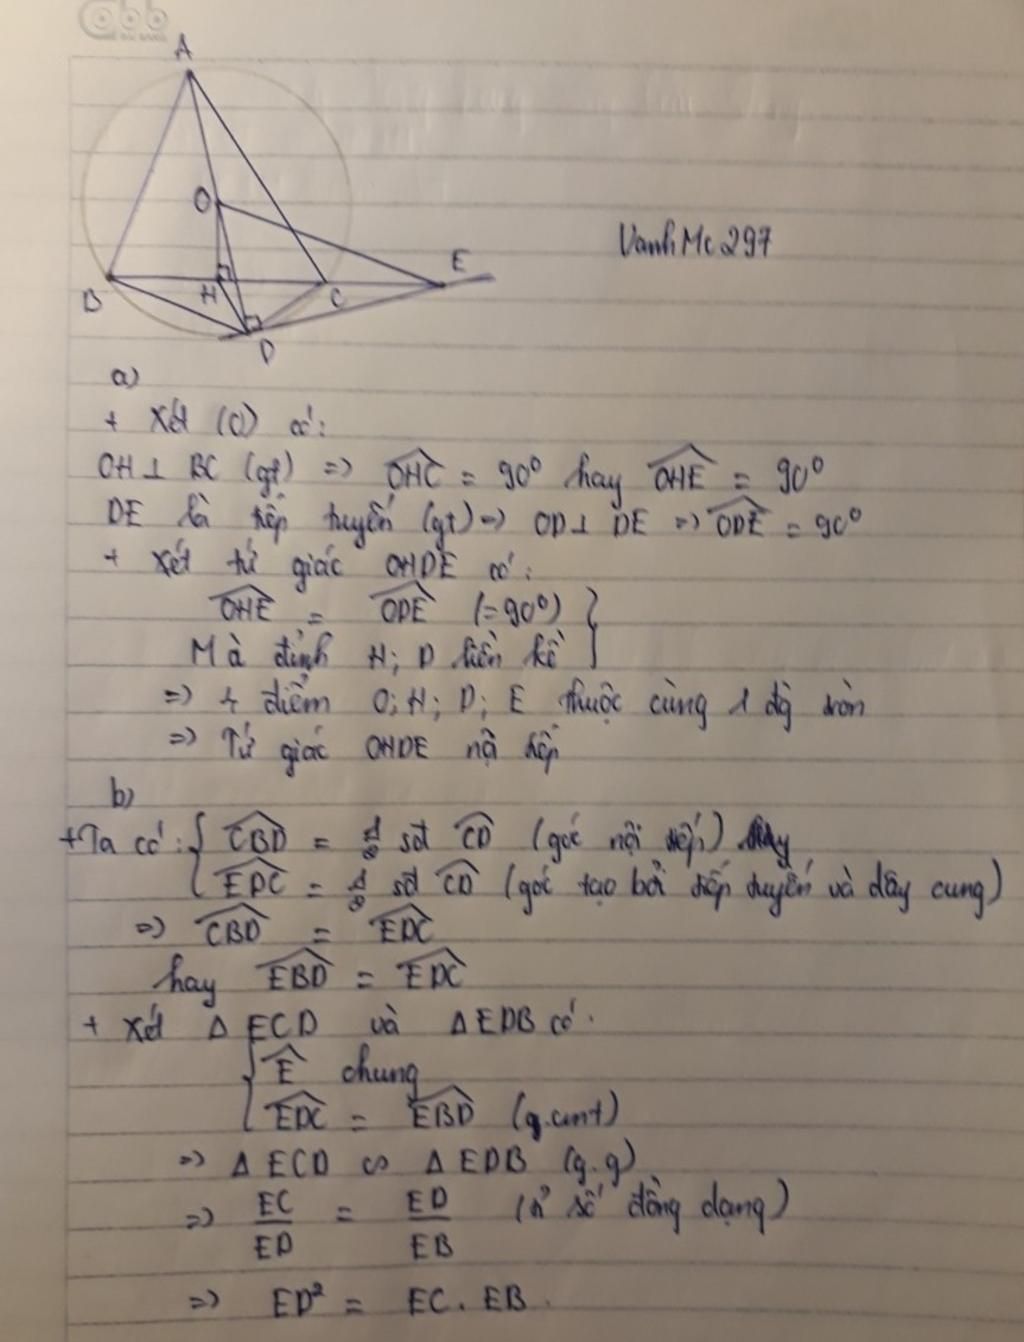 A
O
Vanh Mc 297
E
B
H
C
D
a)
+ Xét (O) có:
OH ⊥ BC (gt) => OHC = 90° hay OHE = 90°
DE là tiếp tuyến (gt) => OD ⊥ DE => ODE = 90°
+ Xét tứ giác OHDE có:
OHE = ODE (=90°)
Mà đỉnh H; D liền kề
=> 4 điểm O; H; D; E thuộc cùng 1 đg tròn
=> Tứ giác OHDE nội tiếp
b)
+ Ta có: { CBD = 1/2 sđ CD (góc nội tiếp)
EDC = 1/2 sđ CD (góc tạo bởi tiếp tuyến và dây cung)
=> CBD = EDC
hay EBD = EDC
+ Xét Δ ECD và Δ EDB có:
E chung
EDC = EBD (g.cmt)
=> Δ ECD ∽ Δ EDB (g.g)
=> EC/ED = ED/EB (tỉ số đồng dạng)
=> ED² = EC . EB.